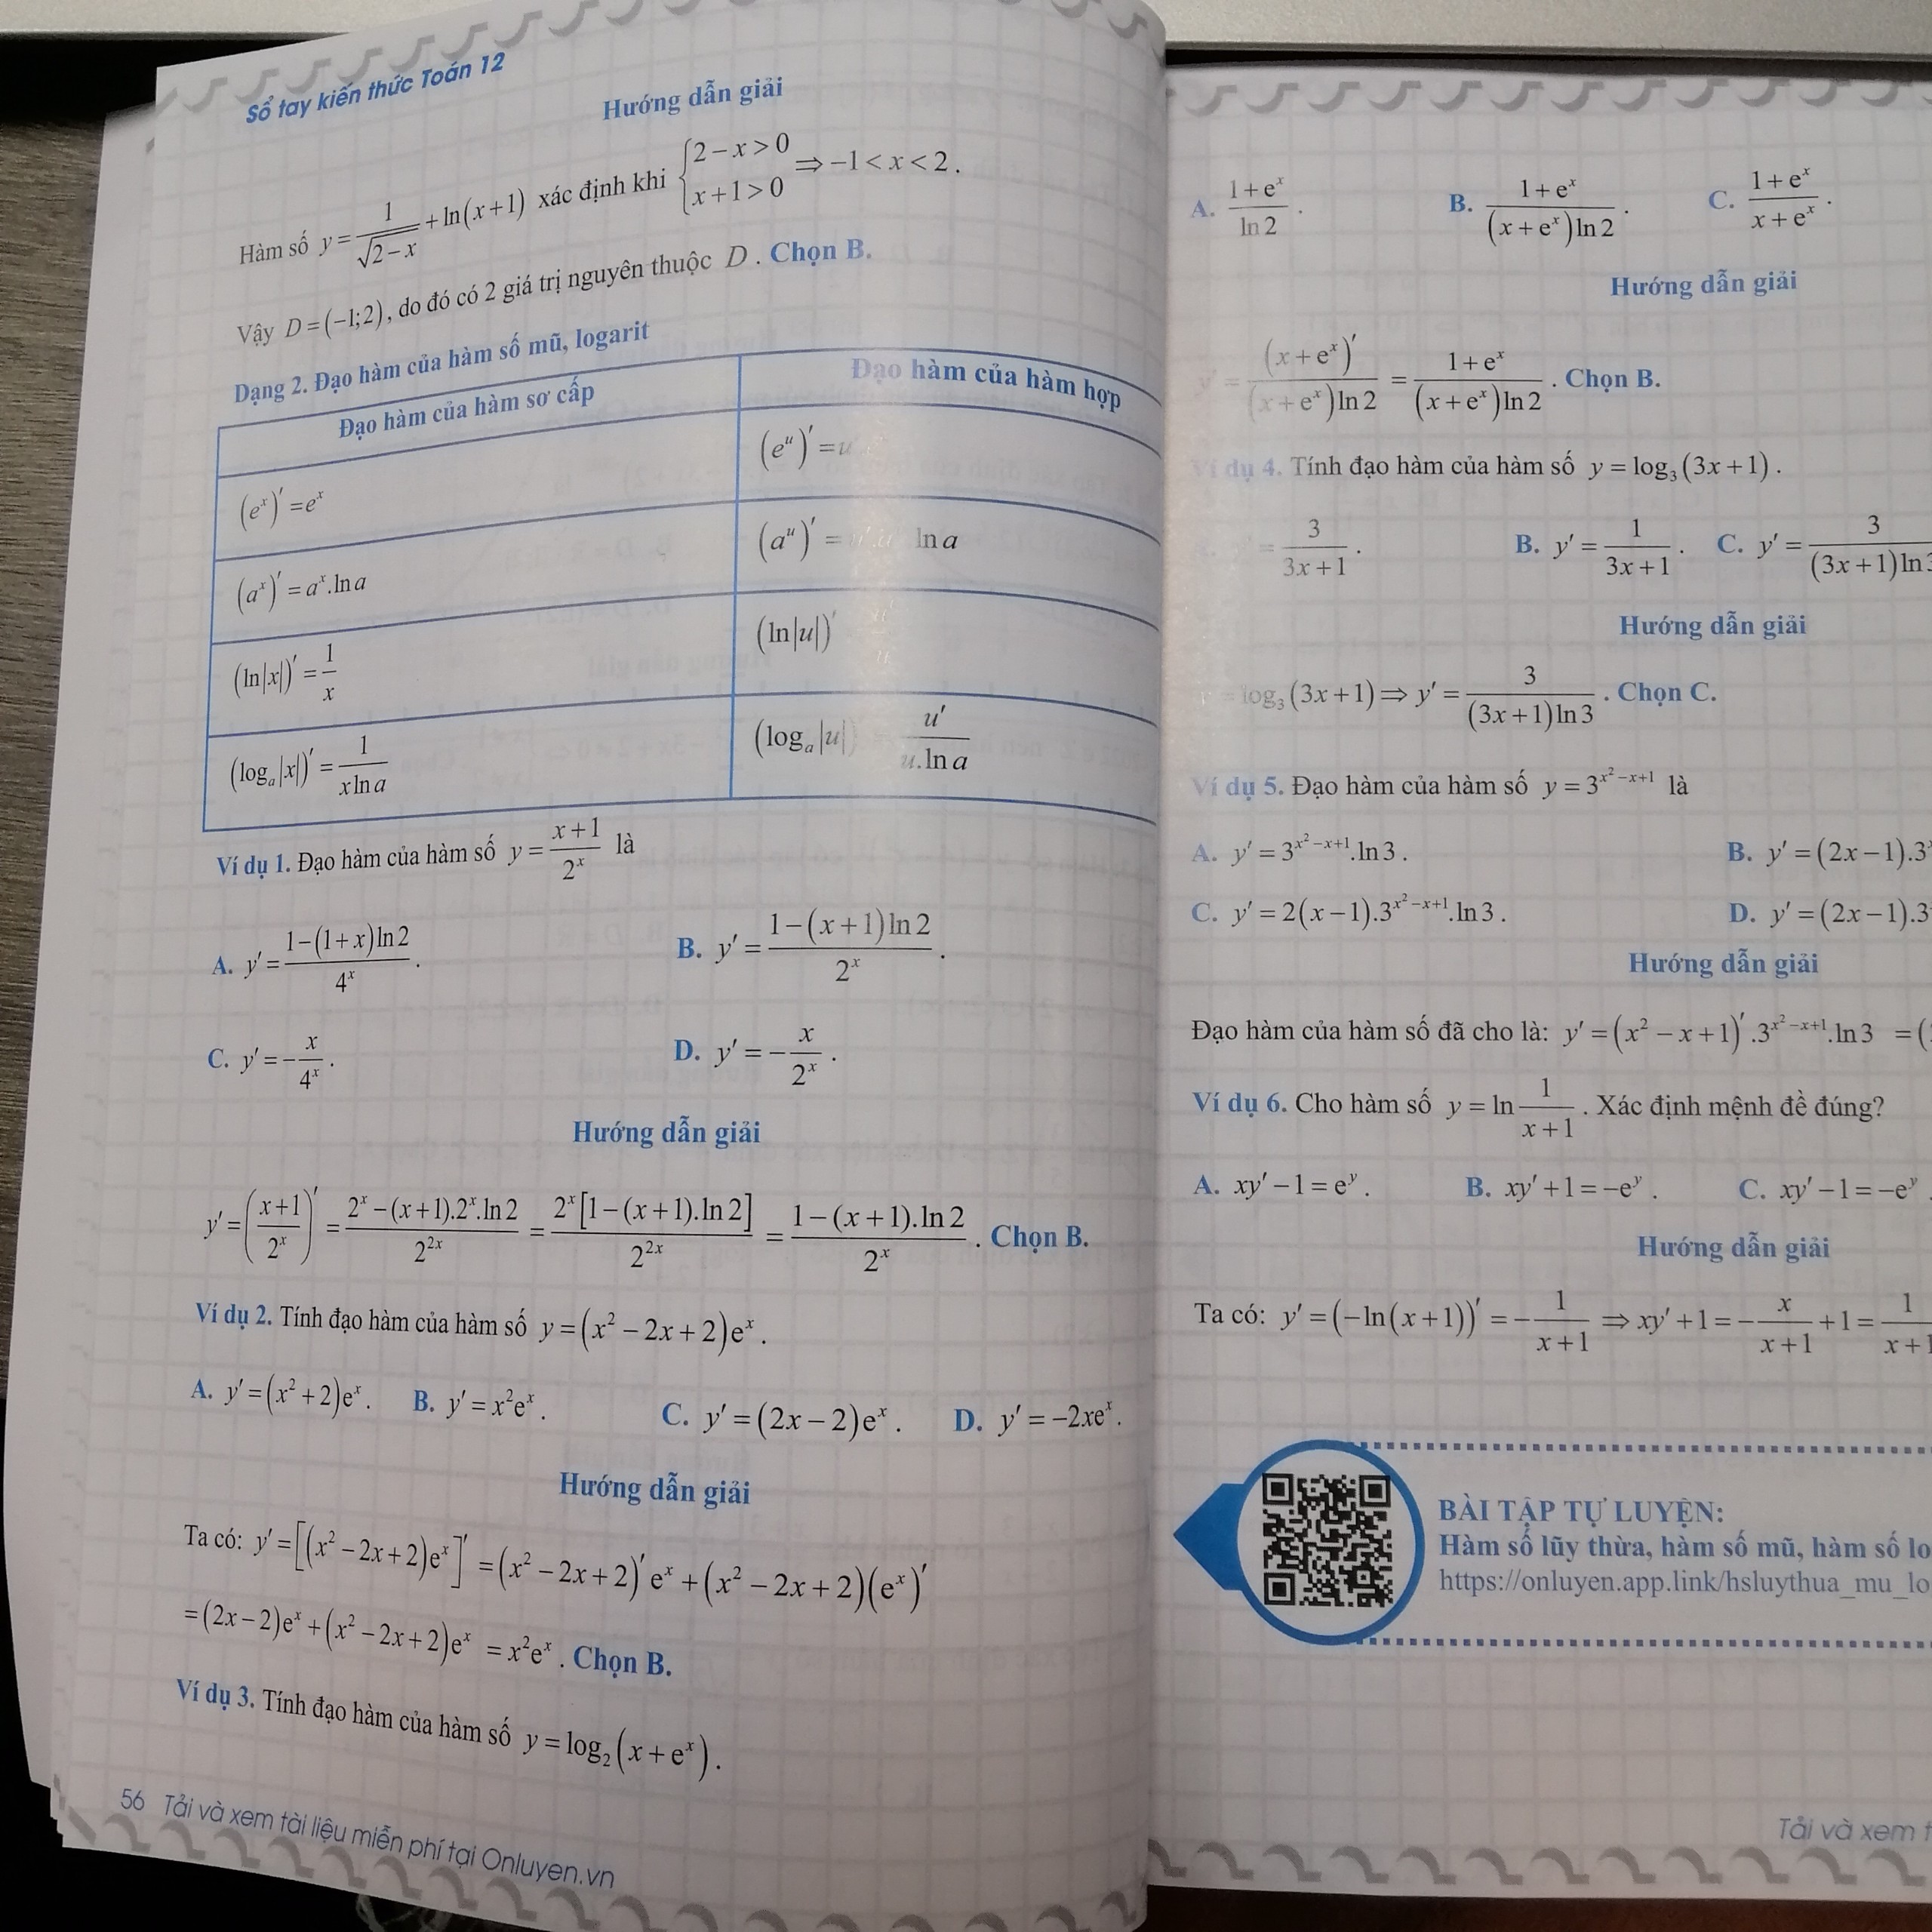 Sổ tay kiến thức Toán 12
Hướng dẫn giải
Hàm số y = 1/√(2−x) + ln(x+1) xác định khi {2−x>0; x+1>0 ⇒ −1<x<2.
Vậy D=(−1;2), do đó có 2 giá trị nguyên thuộc D. Chọn B.
Dạng 2. Đạo hàm của hàm số mũ, logarit
Đạo hàm của hàm sơ cấp Đạo hàm của hàm hợp
(eˣ)′ = eˣ (eᵘ)′ = u
(aˣ)′ = aˣ.ln a (aᵘ)′ = ln a
(ln|x|)′ = 1/x (ln|u|)′
(logₐ|x|)′ = 1/(x ln a) (logₐ|u|) u′/(u.ln a)
Ví dụ 1. Đạo hàm của hàm số y = (x+1)/2ˣ là
A. y′ = (1−(1+x)ln2)/4ˣ. B. y′ = (1−(x+1)ln2)/2ˣ.
C. y′ = −x/4ˣ. D. y′ = −x/2ˣ.
Hướng dẫn giải
y′ = ((x+1)/2ˣ)′ = (2ˣ−(x+1).2ˣ.ln2)/2²ˣ = 2ˣ[1−(x+1).ln2]/2²ˣ = (1−(x+1).ln2)/2ˣ. Chọn B.
Ví dụ 2. Tính đạo hàm của hàm số y = (x²−2x+2)eˣ.
A. y′ = (x²+2)eˣ. B. y′ = x²eˣ. C. y′ = (2x−2)eˣ. D. y′ = −2xeˣ.
Hướng dẫn giải
Ta có: y′ = [(x²−2x+2)eˣ]′ = (x²−2x+2)′eˣ + (x²−2x+2)(eˣ)′
= (2x−2)eˣ + (x²−2x+2)eˣ = x²eˣ. Chọn B.
Ví dụ 3. Tính đạo hàm của hàm số y = log₂(x+eˣ).
56 Tải và xem tài liệu miễn phí tại Onluyen.vn
A. (1+eˣ)/ln2. B. (1+eˣ)/((x+eˣ)ln2). C. (1+eˣ)/(x+eˣ).
Hướng dẫn giải
y′ = (x+eˣ)′/((x+eˣ)ln2) = (1+eˣ)/((x+eˣ)ln2). Chọn B.
Ví dụ 4. Tính đạo hàm của hàm số y = log₃(3x+1).
A. y′ = 3/(3x+1). B. y′ = 1/(3x+1). C. y′ = 3/((3x+1)ln3
Hướng dẫn giải
y = log₃(3x+1) ⇒ y′ = 3/((3x+1)ln3). Chọn C.
Ví dụ 5. Đạo hàm của hàm số y = 3^(x²−x+1) là
A. y′ = 3^(x²−x+1).ln3. B. y′ = (2x−1).3
C. y′ = 2(x−1).3^(x²−x+1).ln3. D. y′ = (2x−1).3
Hướng dẫn giải
Đạo hàm của hàm số đã cho là: y′ = (x²−x+1)′.3^(x²−x+1).ln3 = (
Ví dụ 6. Cho hàm số y = ln 1/(x+1). Xác định mệnh đề đúng?
A. xy′−1 = eʸ. B. xy′+1 = −eʸ. C. xy′−1 = −eʸ
Hướng dẫn giải
Ta có: y′ = (−ln(x+1))′ = −1/(x+1) ⇒ xy′+1 = −x/(x+1)+1 = 1/(x+1
BÀI TẬP TỰ LUYỆN:
Hàm số lũy thừa, hàm số mũ, hàm số lo
https://onluyen.app.link/hsluythua_mu_lo
Tải và xem t